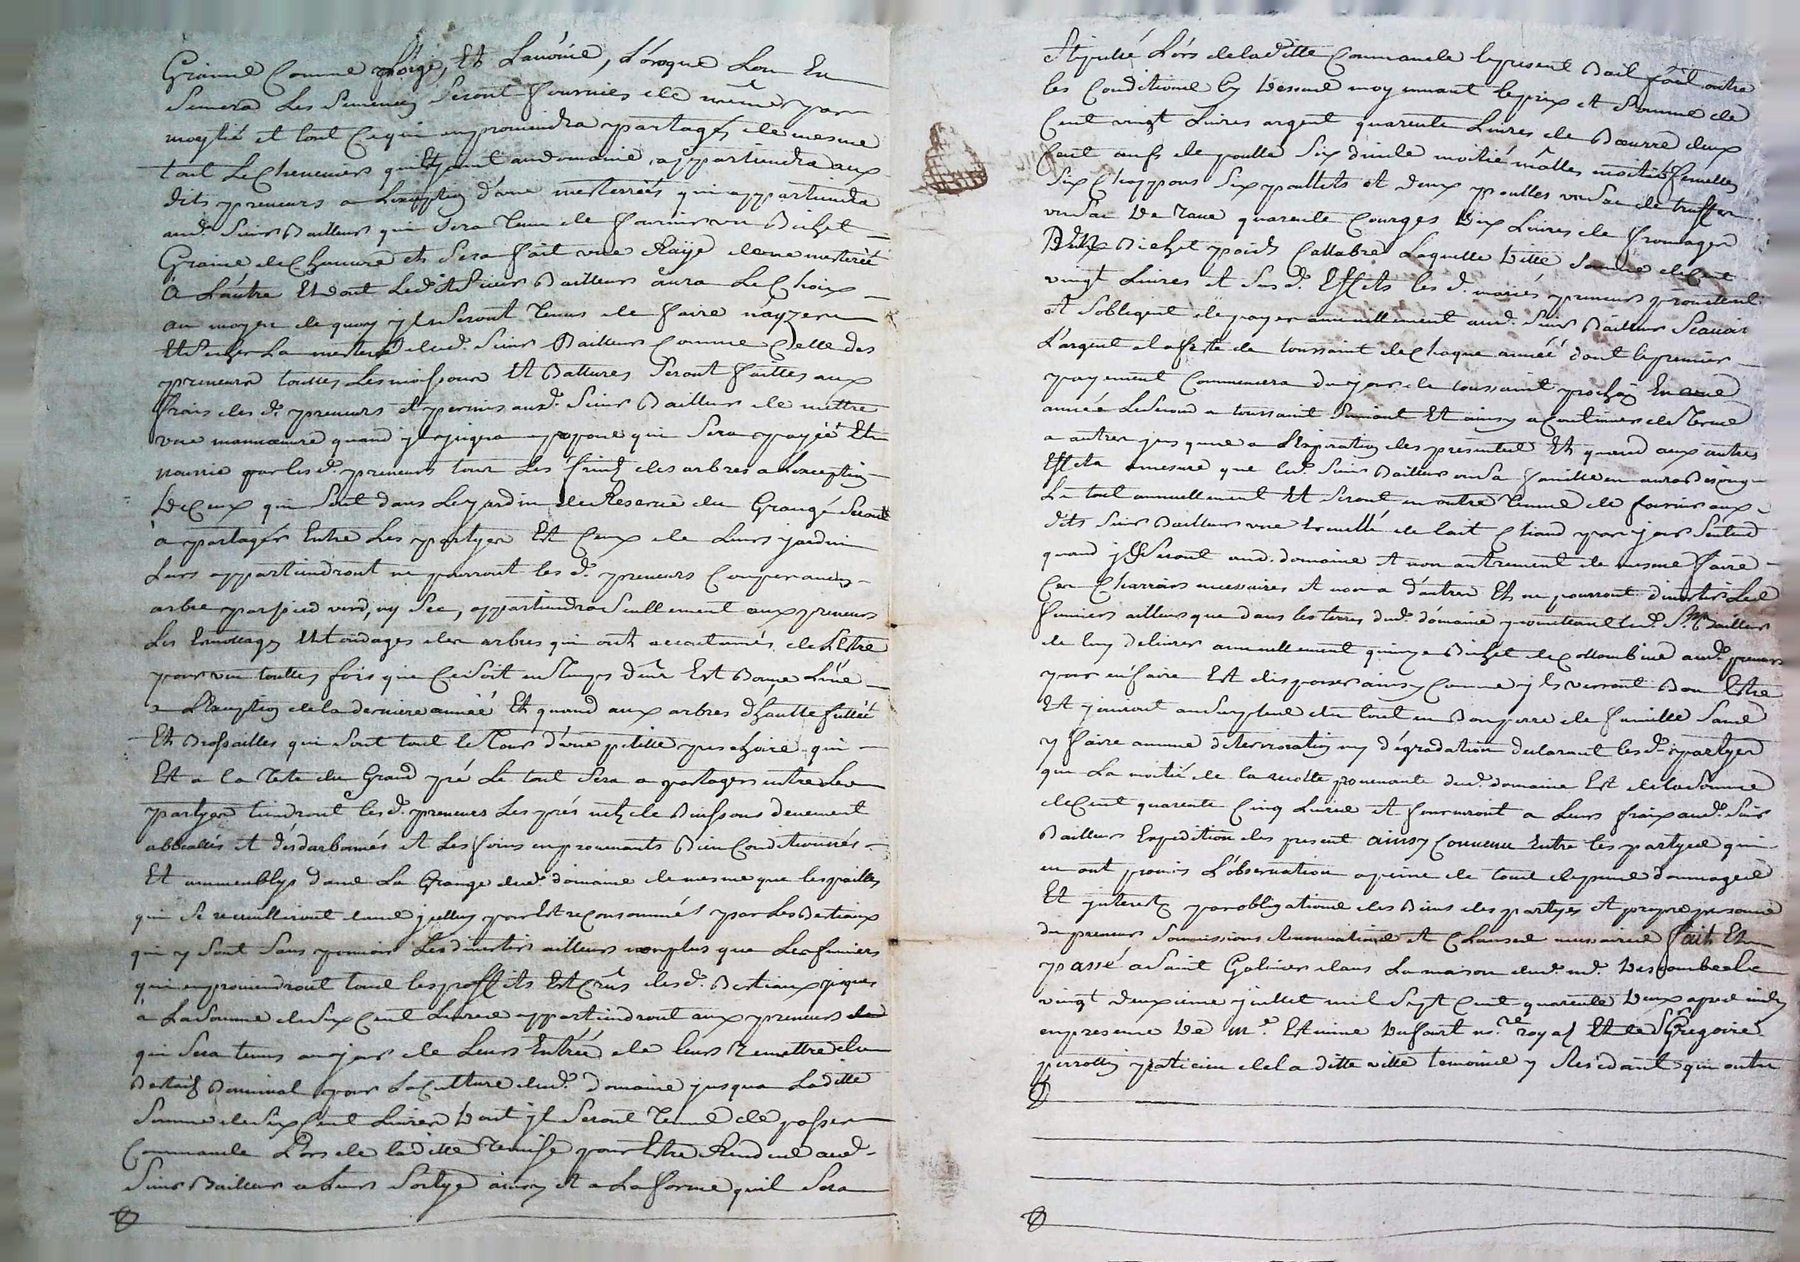 Grainne Comme Lorge, Et Lavoine, Lorsque Lon En
Semera Les Semences Seront fournies de meme par
moytié et tout Ce qui en proviendra partagés de mesme
tout Le Chenevier qui Est audomaine appartiendra aux
dits preneurs a Lexception d'une mesterreés qui appartiendra
aud. Sieur Bailleur qui Sera Tenu de fournir un Bichet
Graine de Chanvre et Sera fait une Raÿe de une mesterée
A L'autre Et dont Led. Sieur Bailleur aura Le Choix
au moyen de quoy jls Seront Tenus de faire nayzer
Et Secher La mesteré dud. Sieur Bailleur Comme Celle des
preneurs touttes Les moissons Et Battures Seront faittes aux
frais des d. preneurs et permis aud. Sieur Bailleur de mettre
une manoeuvre quand jl jugera apropos qui Sera payée Et
nourrie par les d. preneurs tous Les fruits des arbres a Lexception
De Ceux qui Sont dans Le jardin de Reserve du Grangé Seront
a partager Entre Les partyes Et Ceux de Leurs jardin
Leurs appartiendront ne pourront les d. preneurs Couper aucuns
arbre par pied verd, ny Sec, appartiendra Seullement aux preneurs
Les Emottages Et tondages des arbres qui ont accoutumés de L'Estre
pour une touttes fois que Ce Soit en Temps dûe Est Bonne Lune
a L'exception de la derniere année Et quand aux arbres d'hautte futtée
Et Brossailles qui Sont tout le Tour d'une petitte peschoire qui
Est a la Tete du Grand pré Le tout Sera a partager entre Les
partyes tiendront les d. preneurs Les prés netz de Buissons deuement
abbealés et désdarbonnés et Les foins en provenants Bien Conditionnés
Et ammeublys dans La Grange dud. domaine de mesme que les pailles
qui Se recuilliront dans jcelluy pour Estre Consommés par Les Bestiaux
qui y Sont Sans pouvoir Les divertir ailleurs non plus que Les fumiers
qui en proviendront tous les proffits Et Crûs des d. Bestiaux
a La Somme de Six Cent Livres appartiendront aux preneurs
qui Sera tenus au jour de Leurs Entrée de leurs Remettre
Bestail pour La Culture dud. domaine jusqua Laditte
Somme de Six Cent Livres Dont jl Seront Tenus de passer
Commande Lors de laditte Remise pour Estre Rendue aud.
Sieur Bailleur a Leurs Sortye ainsy et a La forme quil Sera
Stipulé Lors de laditte Commande Le present Bail fait outre
les Conditions Cy Dessus moyennant le prix et Somme de
Cent vingt Livres argent quarente Livres de Boeurre deux
Cent oeufs de poulle Six dinde moitié mâlles moitié femelles
Six Chappons Six poullets et deux poulles un Sac de truffes
un Sac De Rave quarente Courges Dix Livres de fromages
Bichet poids Callabre Laquelle Ditte Somme de Cent
vingt Livres et Sus d. Effets les d. mariés preneurs promettent
Et S'obligent de payer annuellement aud. Sieur Bailleur Scavoir
L'argent a la feste de toussaint de Chaque année dont le premier
payement Commencera du jour de toussaint prochain En une
année Le Second a toussaint Suivant Et ainsy a Continuer de Terme
a autres jusques a L'Expiration des presentes Et quand aux autres
Effets amesure que led. Sieur Bailleur ou Sa famille en auras Besoing
Le tout annuellement Et Seront en outre Tenus de fournir aux
dits Sieur Bailleur une de lait Chaud par jour Seulement
quand jls Seront aud. domaine et non autrement de mesme faire
Les Charrois necessaires et non a d'autres Et ne pourront divertir Les
fumiers ailleurs que dans les terres dud. domaine promettant led. Sr. Bailleur
de luy delivrer annuellement quinze Bichet de Collombine aud. preneurs
pour en faire Est disposer ainsy Comme jls verront Bon Estre
Et jouiront au Surplus du tout en Bon pere de famille Sans
y faire aucune deterrioration ny dégradation declarant les d. partyes
que La moitié de la recolte provenante dud. domaine Est de la Somme
de Cent quarente Cinq Livres et fourniront a Leurs fraix aud. Sieur
Bailleur Expedition des present ainsy Convenu Entre les partyes qui
en ont promis L'observation a peine de tous depens dommages
Et jnterests par obligations des Biens des partyes et propre personne
du preneur Soumissions Renonciations et Clauses necessaires fait Et
passé a Saint Galmier dans La maison dud. Sr. Descombes Le
vingt deuxieme juillet mil Sept Cent quarente Deux apres midy
en presence De Me. Estienne Dufourt nore. royal Et de Sr. Gregoire
perrottin praticien de la ditte ville temoins y Residant qui ontes